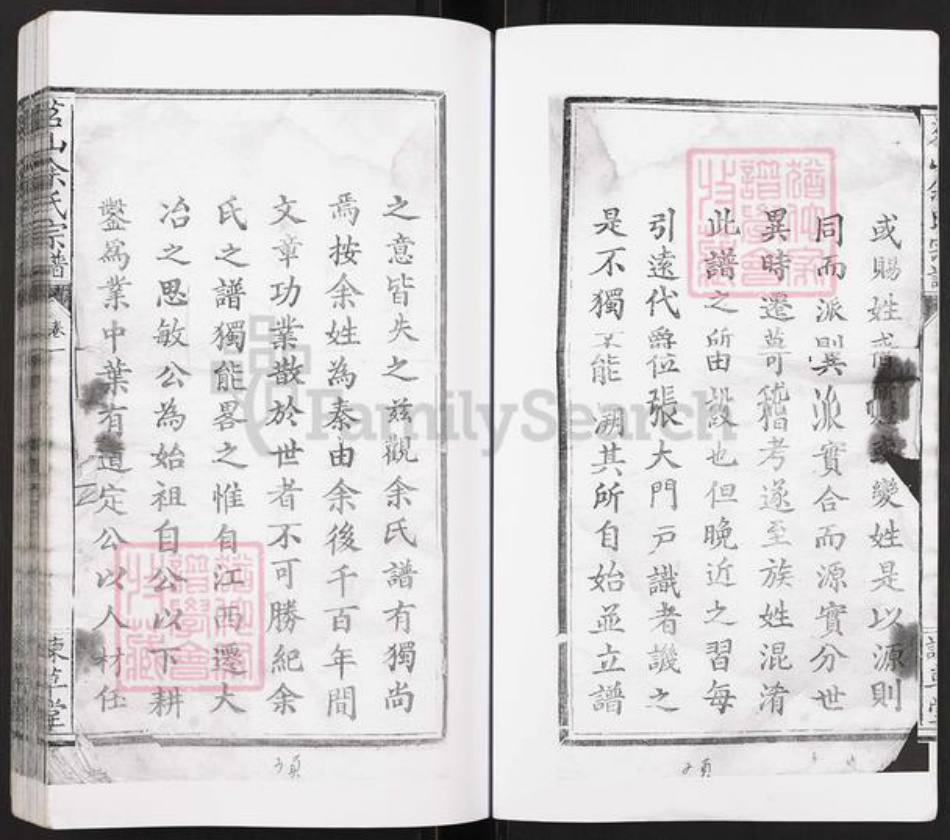 或賜姓或變姓是以源則
同而派則異派實合而源實分世
異時遷莫可稽考遂至族姓混淆
此譜之所由設也但晚近之習每
引遠代爵位張大門戸識者譏之
是不獨不能溯其所自始並立譜
之意皆失之兹觀余氏譜有獨尚
焉按余姓為秦由余後千百年間
文章功業散於世者不可勝紀余
氏之譜獨能畧之惟自江西遷大
冶之思敏公為始祖自公以下耕
鑿為業中葉有道定公以人材任
茗山余氏宗譜
卷一
FamilySearch